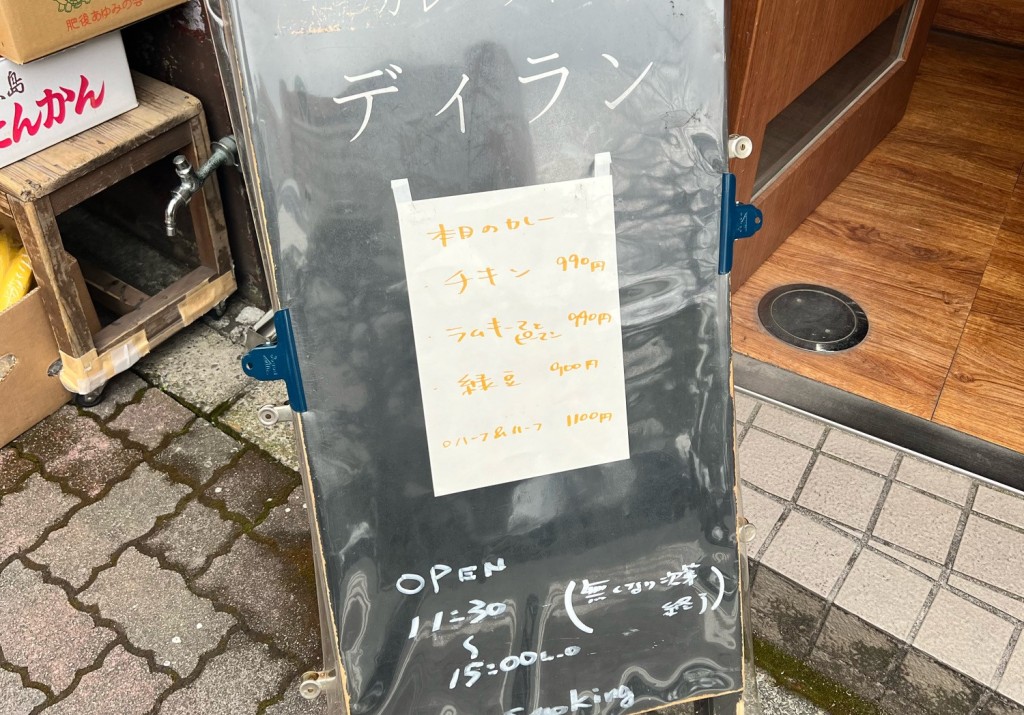 肥後あゆみの会
島
んかん
ディラン
本日のカレー
チキン 990円
ラムキーマとピーマン 990円
緑豆 900円
○ハーフ&ハーフ 1100円
OPEN
11:30
(無くなり次第
終了)
15:00
Smoking